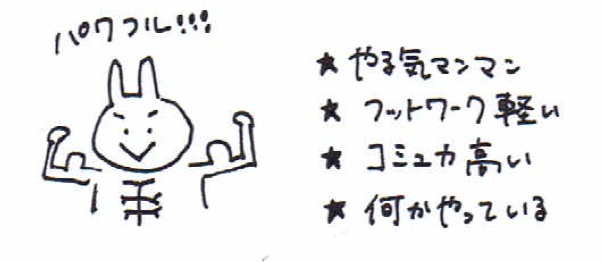 パワフル!!!
★ やる気マンマン
★ フットワーク軽い
★ コミュ力高い
★ 何かやっている